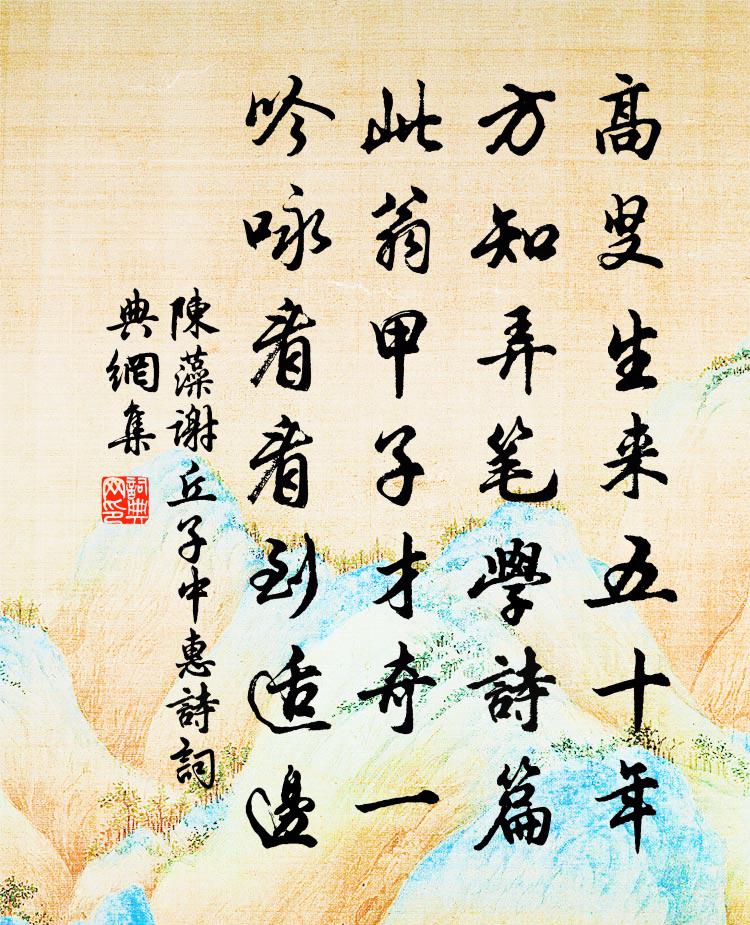 高叟生来五十年
方知弄笔學詩篇
此翁甲子才奇一
吟咏看看到适邊
陳藻謝丘子中惠詩詞
典網集
詞典
网印